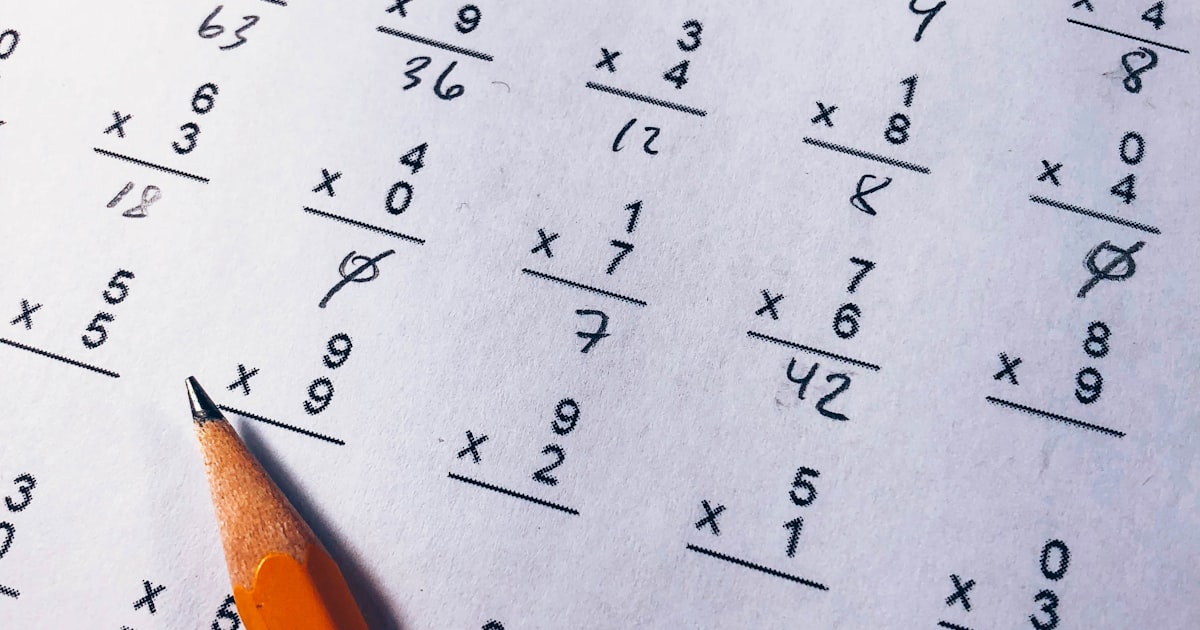 63
× 9
36
3
× 4
12
4
× 4
8
6
× 3
18
4
× 0
0
1
× 7
7
1
× 8
8
0
× 4
0
5
× 5
9
× 9
9
× 2
7
× 6
42
8
× 9
5
× 1
3
0
× 3
×